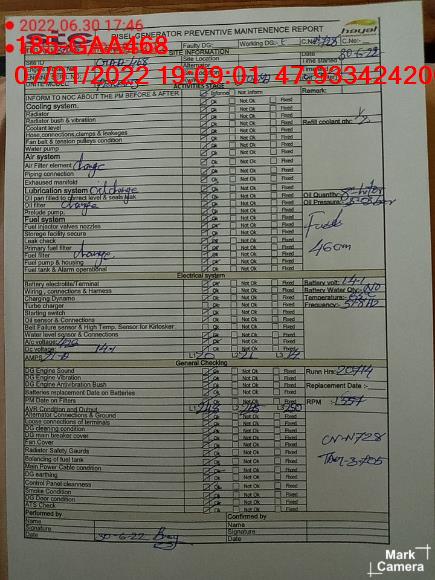 2022.06.30 17:46
DISEL GENERATOR PREVENTIVE MAINTENENCE REPORT
hayel
Faulty DG:- Working DG:- C.No:-
185-GAA468
SITE INFORMATION
Site ID Site Location
07/01/2022 19:09:01 47-933424200
ACTIVITIES STAGE
INFORM TO NOC ABOUT THE PM BEFORE & AFTER Informe Not Inform Fixed Remark:
Cooling system.
Radiator Ok Not Ok Fixed
Radiator bush & vibration Ok Not Ok Fixed
Coolant level Ok Not Ok Fixed Refill coolant qty:
Hose,connections,clamps & leakages Ok Not Ok Fixed
Fan belt & tension pulleys condition Ok Not Ok Fixed
Water pump Ok Not Ok Fixed
Air system
Air Filter element change Ok Not Ok Fixed
Piping connection Ok Not Ok Fixed
Exhausted manifold Ok Not Ok Fixed
Lubrication system Oil change
Oil pan filled to correct level & seals leak Ok Not Ok Fixed Oil Quantity:
Oil filter change Ok Not Ok Fixed Oil Pressure:
Prelude pump. Ok Not Ok Fixed
Fuel system
Fuel injector valves nozzles Ok Not Ok Fixed
Storege facility secure Ok Not Ok Fixed
Leak check Ok Not Ok Fixed
Primary fuel filter Ok Not Ok Fixed
Fuel filter change Ok Not Ok Fixed 46cm
Fuel pump & housing Ok Not Ok Fixed
Fuel tank & Alarm operational Ok Not Ok Fixed
Electrical system
Battery electrolite/Terminal Ok Not Ok Fixed Battery volt: 14.1
Wiring , connections & Harness Ok Not Ok Fixed Battery Water Qty:
Charging Dynamo Ok Not Ok Fixed Temperature:-
Turbe charger Ok Not Ok Fixed Frequency:
Starting switch Ok Not Ok Fixed
Oil sensor & Connections Ok Not Ok Fixed
Belt Failure sensor & High Temp. Sensor for Kirlosker Ok Not Ok Fixed
Water level sensor & Connections Ok Not Ok Fixed
A/c voltage Ok Not Ok Fixed
Dc voltage 14.1 Ok Not Ok Fixed
AMPS L1 20 L2 21 L3
General Checking
DG Engine Sound Ok Not Ok Fixed Runn Hrs: 20714
DG Engine Vibration Ok Not Ok Fixed
DG Engine Antivibration Bush Ok Not Ok Fixed
Batteries replacement Date on Batteries Ok Not Ok Fixed Replacement Date :-
PM Date on Filters Ok Not Ok Fixed
AVR Condition and Output L1 248 L2 L3 250 RPM :- 1554
Alternator Connections & Ground Ok Not Ok Fixed
Loose connections of terminals Ok Not Ok Fixed
DG cleaning condition Ok Not Ok Fixed
DG main breaker cover Ok Not Ok Fixed CN-N728
Fan Cover Ok Not Ok Fixed
Radiator Safety. Gaurds Ok Not Ok Fixed
Balancing of fuel tank Ok Not Ok Fixed
Main Power Cable condition Ok Not Ok Fixed
DG earthing Ok Not Ok Fixed
Control Panel cleanness Ok Not Ok Fixed
Smoke Condition Ok Not Ok Fixed
DG Door condition Ok Not Ok Fixed
ATS Check Ok Not Ok Fixed
Performed by Confirmed by
Name Name
Signature Signature
Date 30-6-22 Date
Mark
Camera